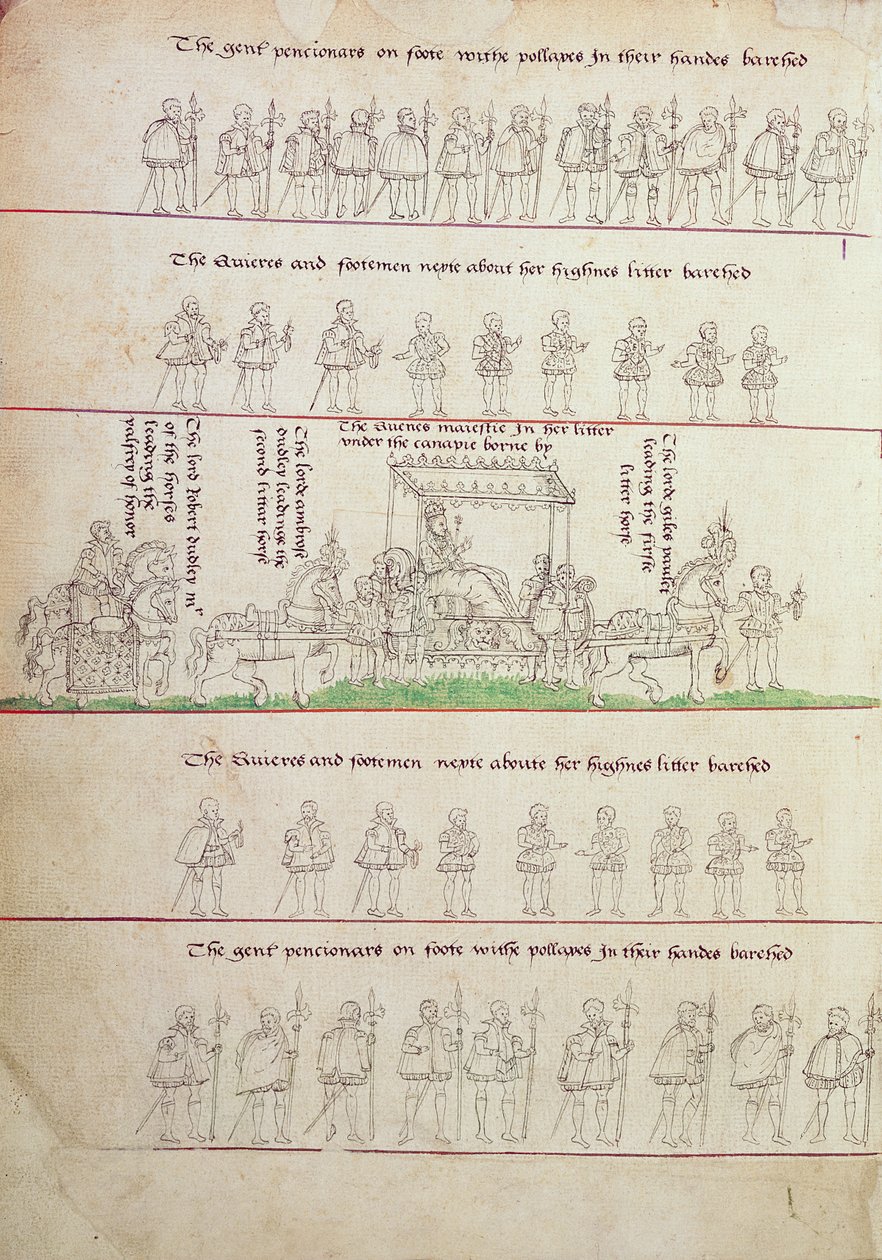 The gent pencionars on foote withe pollaxes In their handes barehed
The Quieres and footemen nexte about her highnes litter barehed
The lord Robert dudley mr
of the horses
leading the
palfrey of honor
The lorde ambrose
dudley leadinge the
second littur horse
The Quenes maiestie In her litter
vnder the canapie borne by
The lorde giles paulet
leading the firste
litter horse
The Quieres and footemen nexte aboute her highnes litter barehed
The gent pencionars on foote withe pollaxes In their handes barehed